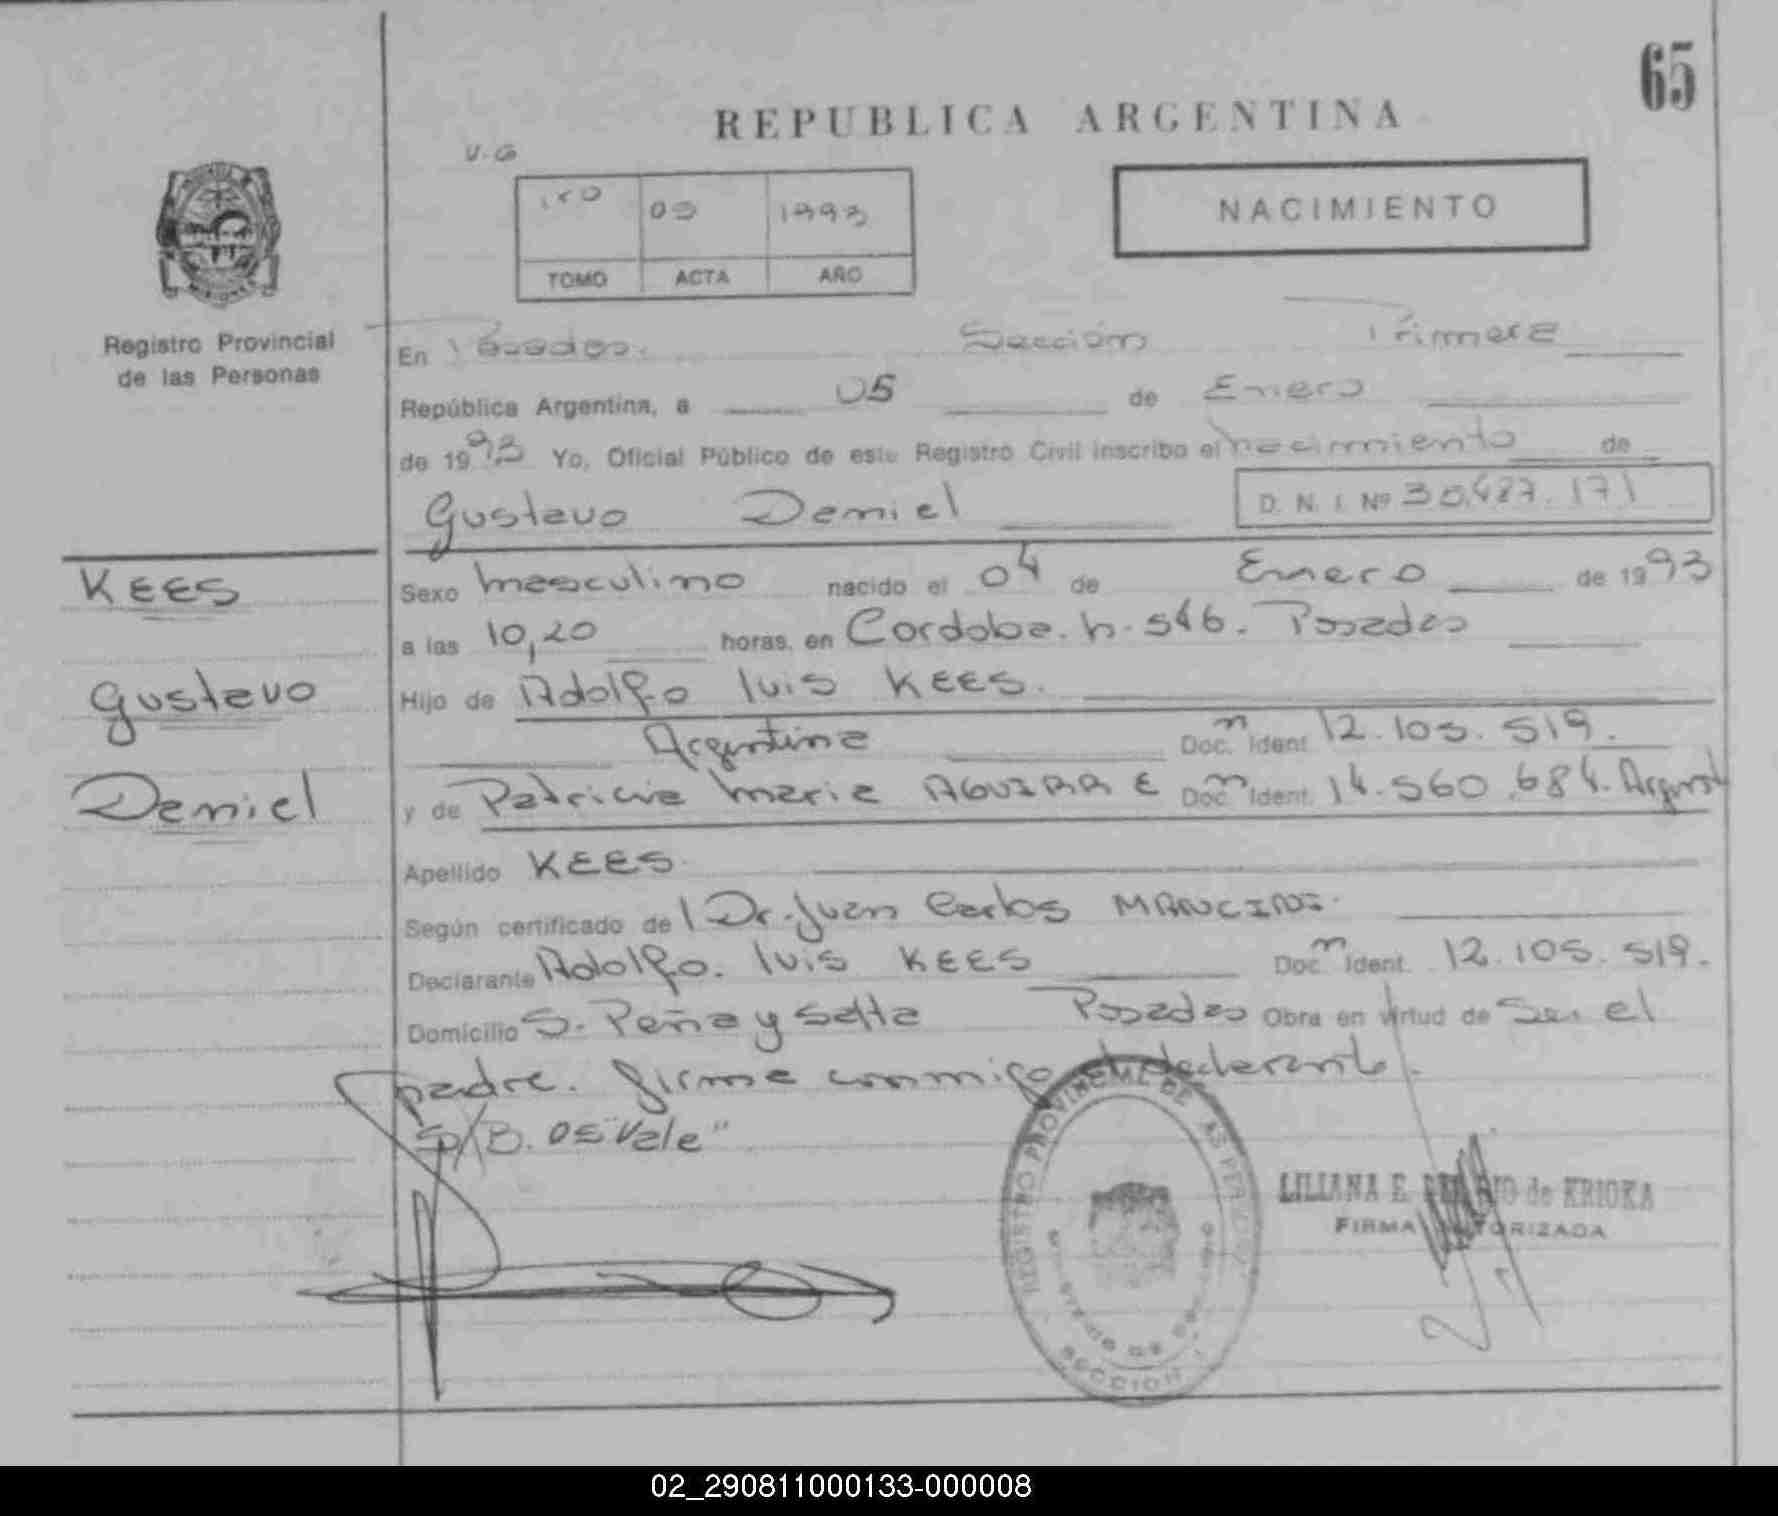 65
REPUBLICA ARGENTINA
V-G
1ro 05 1993
TOMO ACTA AÑO
NACIMIENTO
Registro Provincial
de las Personas
En Posadas. Sección Primera
República Argentina, a 05 de Enero
de 1993 Yo, Oficial Público de este Registro Civil inscribo el nacimiento de
Gustavo Daniel D. N. I. Nº 30.487.171
KEES
Gustavo
Daniel
Sexo masculino nacido el 04 de Enero de 1993
a las 10,20 horas, en Cordoba. n. 546. Posadas
Hijo de Adolfo luis KEES.
Argentina Doc. n Ident. 12.105.519.
y de Patricia Maria AGUIRRE Doc. n Ident. 14.560.684. Argent
Apellido KEES
Según certificado de l Dr. Juan Carlos MANCINI.
Declarante Adolfo. luis KEES Doc. n Ident. 12.105.519.
Domicilio S. Peña y Salta Posadas Obra en virtud de Ser el
padre. firma conmigo el declarante.
S/B. 05 "Vale"
REGISTRO PROVINCIAL DE LAS PERSONAS
SECCION 1
LILIANA E. de KRIOKA
FIRMA AUTORIZADA
02_290811000133-000008